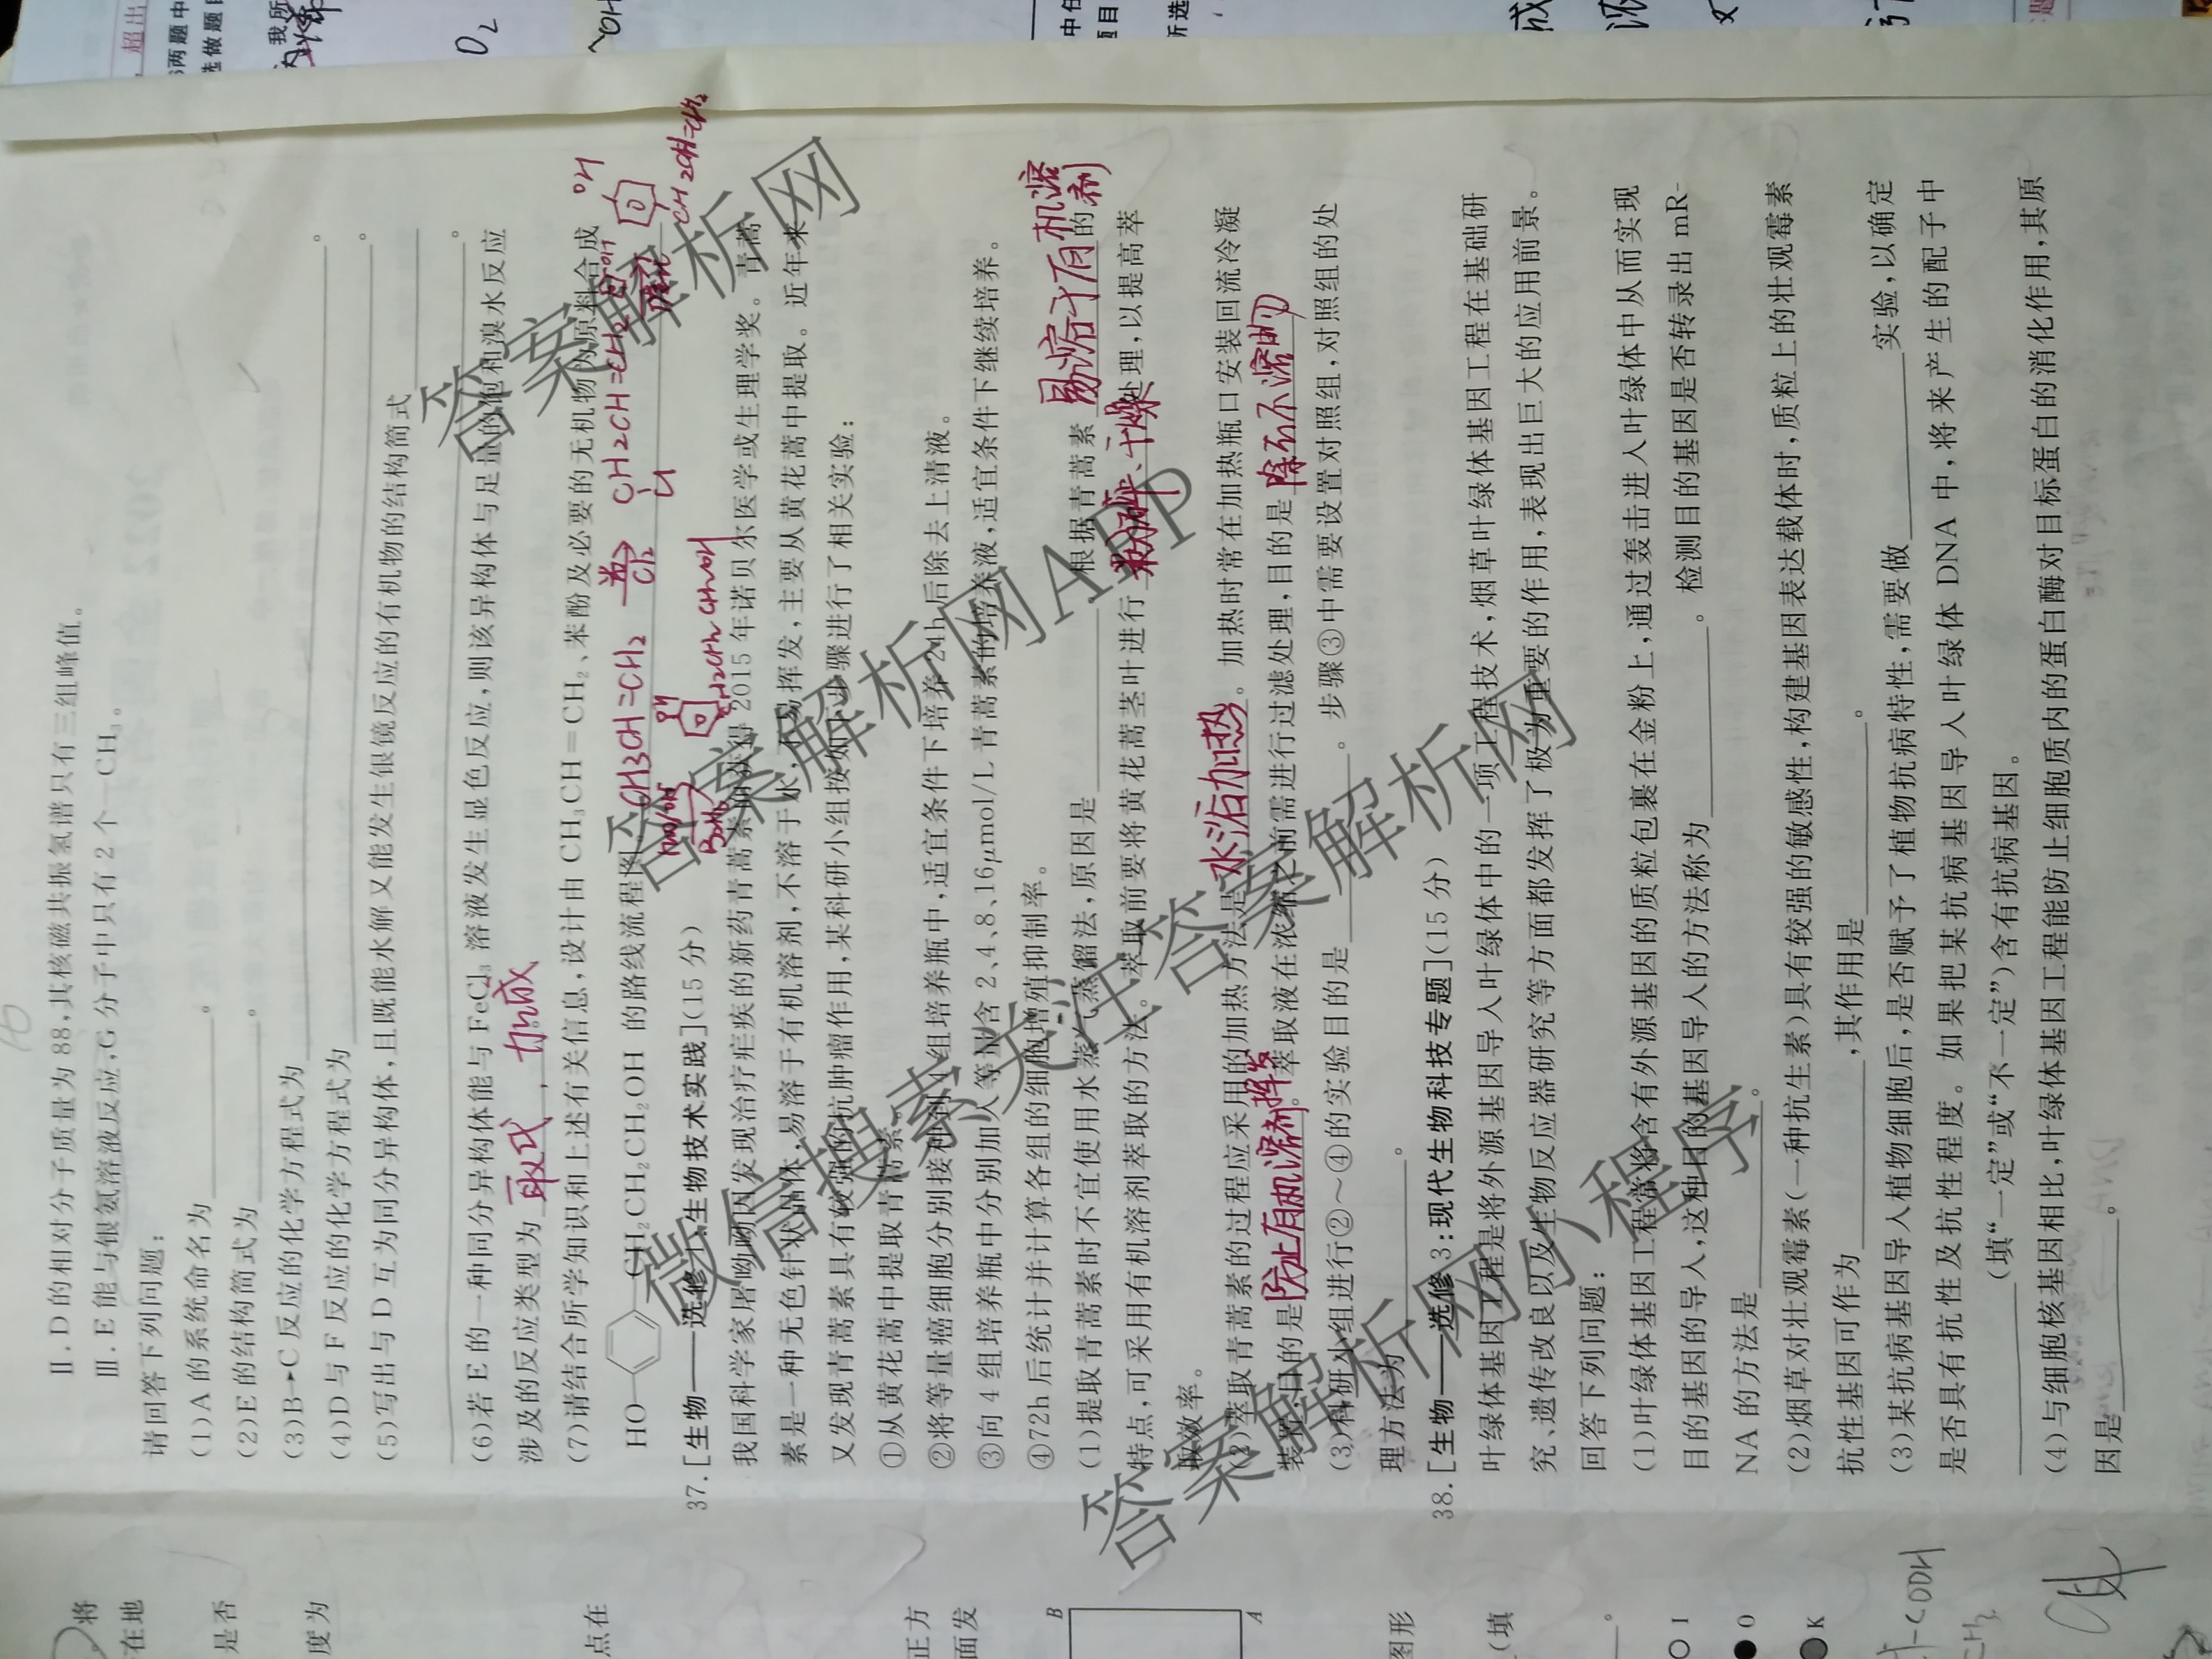 Ⅱ.D的相对分子质量为88,其核磁共振氢谱只有三组峰值。
Ⅲ.E能与银氨溶液反应,G分子中只有2个—CH₃。
请回答下列问题:
(1)A的系统命名为________。
(2)E的结构简式为________。
(3)B→C反应的化学方程式为________。
(4)D与F反应的化学方程式为________。
(5)写出与D互为同分异构体,且既能水解又能发生银镜反应的有机物的结构简式________
________。
(6)若E的一种同分异构体能与FeCl₃溶液发生显色反应,则该异构体与足量的饱和溴水反应
涉及的反应类型为 取代、加成 。
(7)请结合所学知识和上述有关信息,设计由CH₃CH=CH₂、苯酚及必要的无机物为原料合成
HO— —CH₂CH₂CH₂OH 的路线流程图: CH3CH=CH2 CH2CH=CH2
37.[生物——选修1:生物技术实践](15分)
我国科学家屠呦呦因发现治疗疟疾的新药青蒿素而获得2015年诺贝尔医学或生理学奖。青蒿
素是一种无色针状晶体,易溶于有机溶剂,不溶于水,不易挥发,主要从黄花蒿中提取。近年来
又发现青蒿素具有较强的抗肿瘤作用,某科研小组按如下步骤进行了相关实验:
①从黄花蒿中提取青蒿素。
②将等量癌细胞分别接种到4组培养瓶中,适宜条件下培养24h后除去上清液。
③向4组培养瓶中分别加入等量含2、4、8、16μmol/L青蒿素的培养液,适宜条件下继续培养。
④72h后统计并计算各组的细胞增殖抑制率。
(1)提取青蒿素时不宜使用水蒸气蒸馏法,原因是________。根据青蒿素 易溶于有机溶剂 的
特点,可采用有机溶剂萃取的方法。萃取前要将黄花蒿茎叶进行 粉碎、干燥 处理,以提高萃
取效率。
(2)萃取青蒿素的过程应采用的加热方法是 水浴加热 。加热时常在加热瓶口安装回流冷凝
装置,目的是 防止有机溶剂挥发 。萃取液在浓缩之前需进行过滤处理,目的是 除去不溶物
(3)科研小组进行②~④的实验目的是________。步骤③中需要设置对照组,对照组的处
理方法为________。
38.[生物——选修3:现代生物科技专题](15分)
叶绿体基因工程是将外源基因导入叶绿体中的一项工程技术,烟草叶绿体基因工程在基础研
究、遗传改良以及生物反应器研究等方面都发挥了极为重要的作用,表现出巨大的应用前景。
回答下列问题:
(1)叶绿体基因工程常将含有外源基因的质粒包裹在金粉上,通过轰击进入叶绿体中从而实现
目的基因的导入,这种目的基因导入的方法称为________。检测目的基因是否转录出mR-
NA的方法是________。
(2)烟草对壮观霉素(一种抗生素)具有较强的敏感性,构建基因表达载体时,质粒上的壮观霉素
抗性基因可作为________,其作用是________。
(3)某抗病基因导入植物细胞后,是否赋予了植物抗病特性,需要做________实验,以确定
是否具有抗性及抗性程度。如果把某抗病基因导入叶绿体DNA中,将来产生的配子中
________(填“一定”或“不一定”)含有抗病基因。
(4)与细胞核基因相比,叶绿体基因工程能防止细胞质内的蛋白酶对目标蛋白的消化作用,其原
因是________。
答案解析网
答案解析网APP
微信搜索关注答案解析网
答案解析网小程序
将
在地
是否
度为
点在
正方
面发
B
A
图形
(填
I
O
K
超出
选做题目
O₂
中任
所选